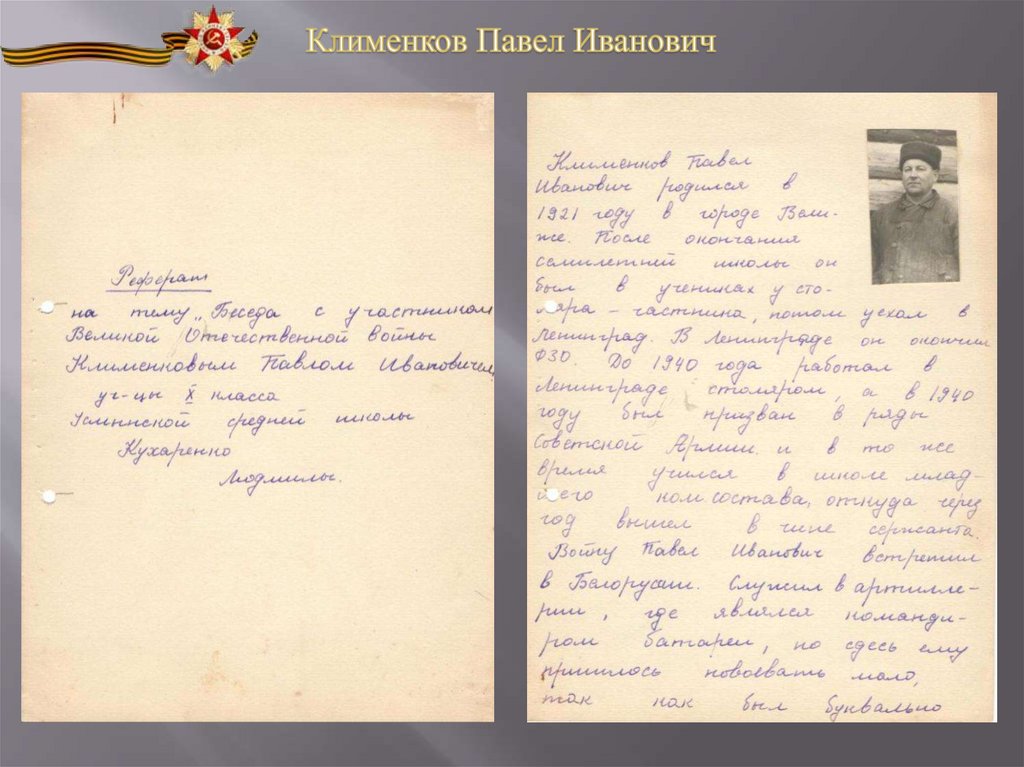 Клименков Павел Иванович
Реферат
на тему „Беседа с участником
Великой Отечественной войны
Клименковым Павлом Ивановичем
уч-цы X класса
Усминской средней школы
Кухаренко
Людмилы.
Клименков Павел
Иванович родился в
1921 году в городе Вели-
же. После окончания
семилетней школы он
был в учениках у сто-
ляра - частника, потом уехал в
Ленинград. В Ленинграде он окончил
ФЗО. До 1940 года работал в
Ленинграде столяром, а в 1940
году был призван в ряды
Советской Армии и в то же
время учился в школе млад-
шего ком. состава, откуда через
год вышел в чине сержанта.
Войну Павел Иванович встретил
в Белоруссии. Служил в артилле-
рии, где являлся команди-
ром батареи, но здесь ему
пришлось повоевать мало,
так как был буквально